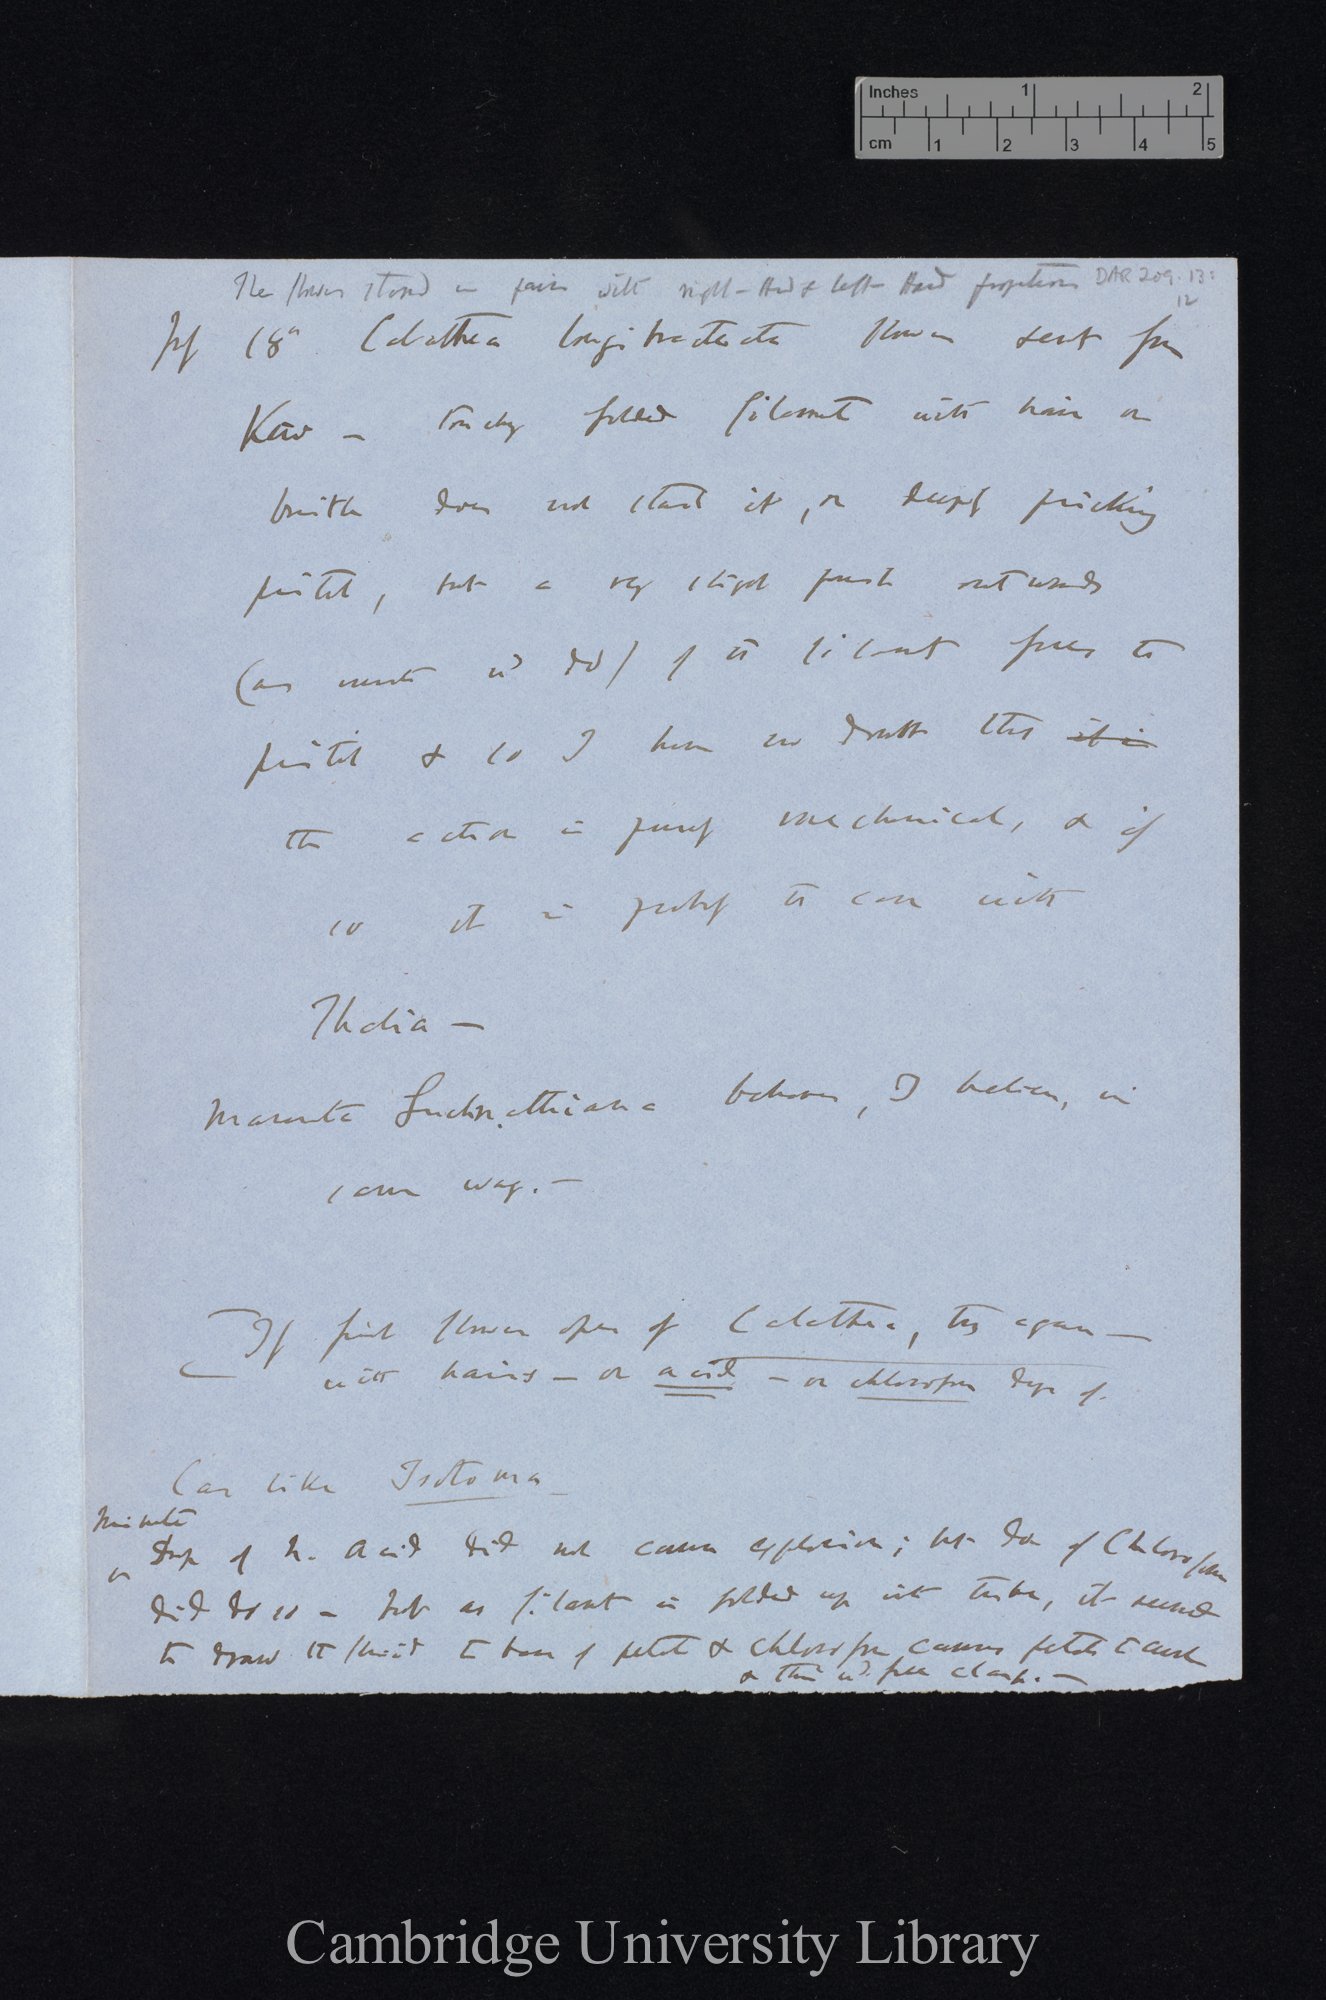 Inches 1 2
cm 1 2 3 4 5
The flowers stand in pairs with right-Hand & left Hand projections DAR 209.13:
12
18th Calathea longibracteata flowers sent from
Kew — touching folded filament with hair or
bristle does not start it, or deeply pricking
pistil, but a very slight push outwards
(as insects wd do) of the filament frees the
pistil & so I have no doubt that it is
the action is purely mechanical, & if
so it is probably the case with
Thalia —
Maranta behaves, I believe, in
same way. —
If first flower open of Calathea, try again —
with hairs — or acid — or chloroform drop of.
Case like Isotoma
Minute
Drop of N. Acid did not cause explosion; but do of Chloroform
did do so — but as filament is folded up into tube, it seemed
to draw the fluid to base of petal & chloroform causes petals to curl
& this wd. free clasp. —
Cambridge University Library